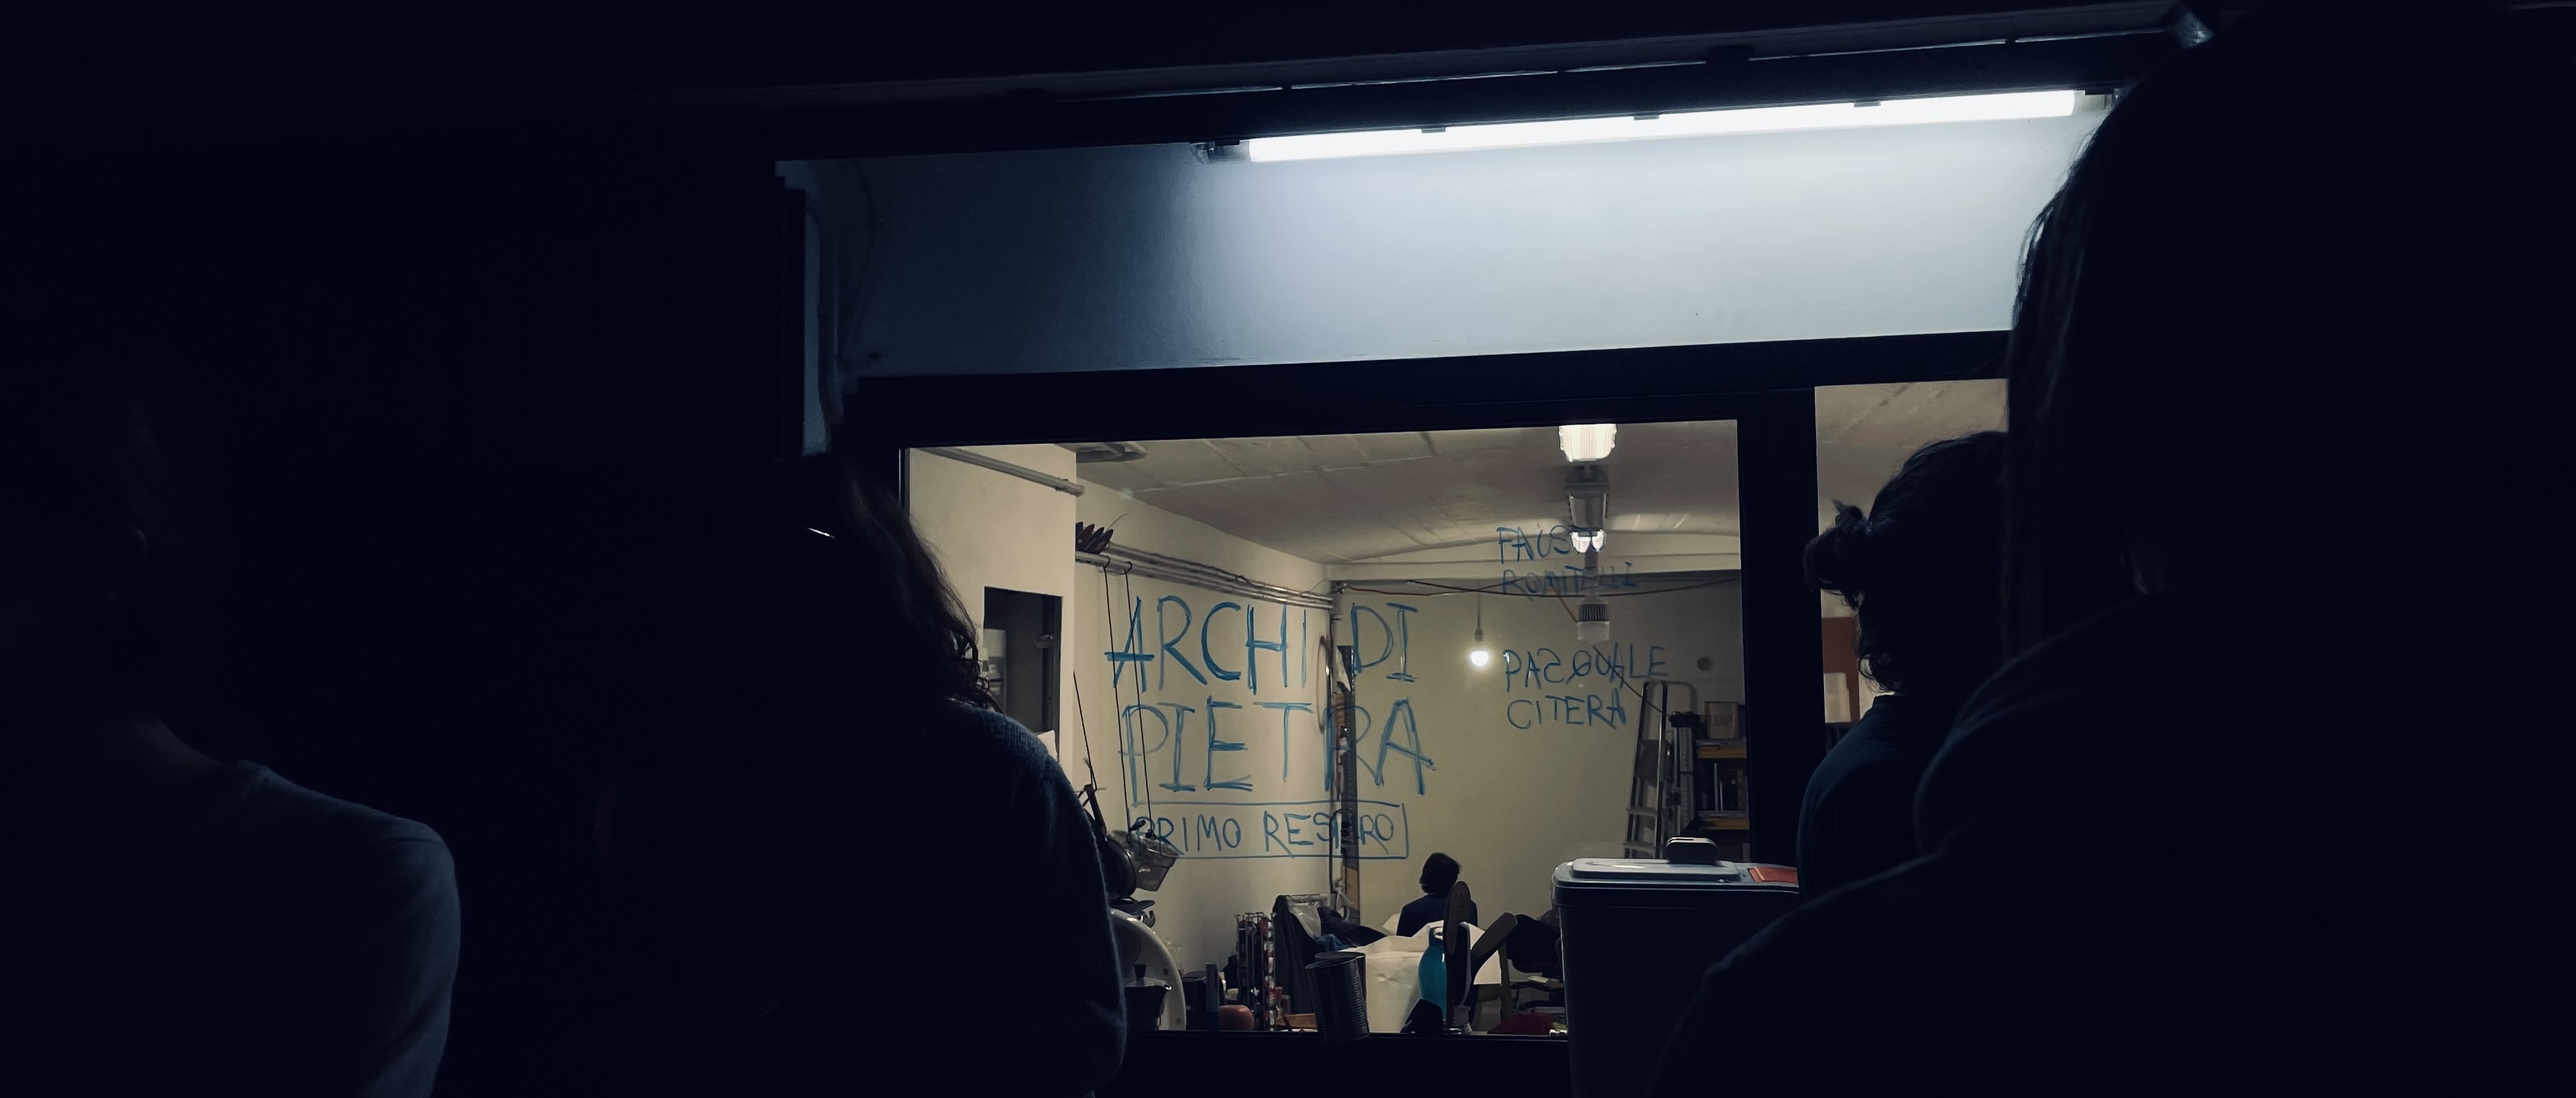 ARCHI DI
PIETRA
PRIMO RESPIRO
FAUSTO
ROMITELLI
PASQUALE
CITERA